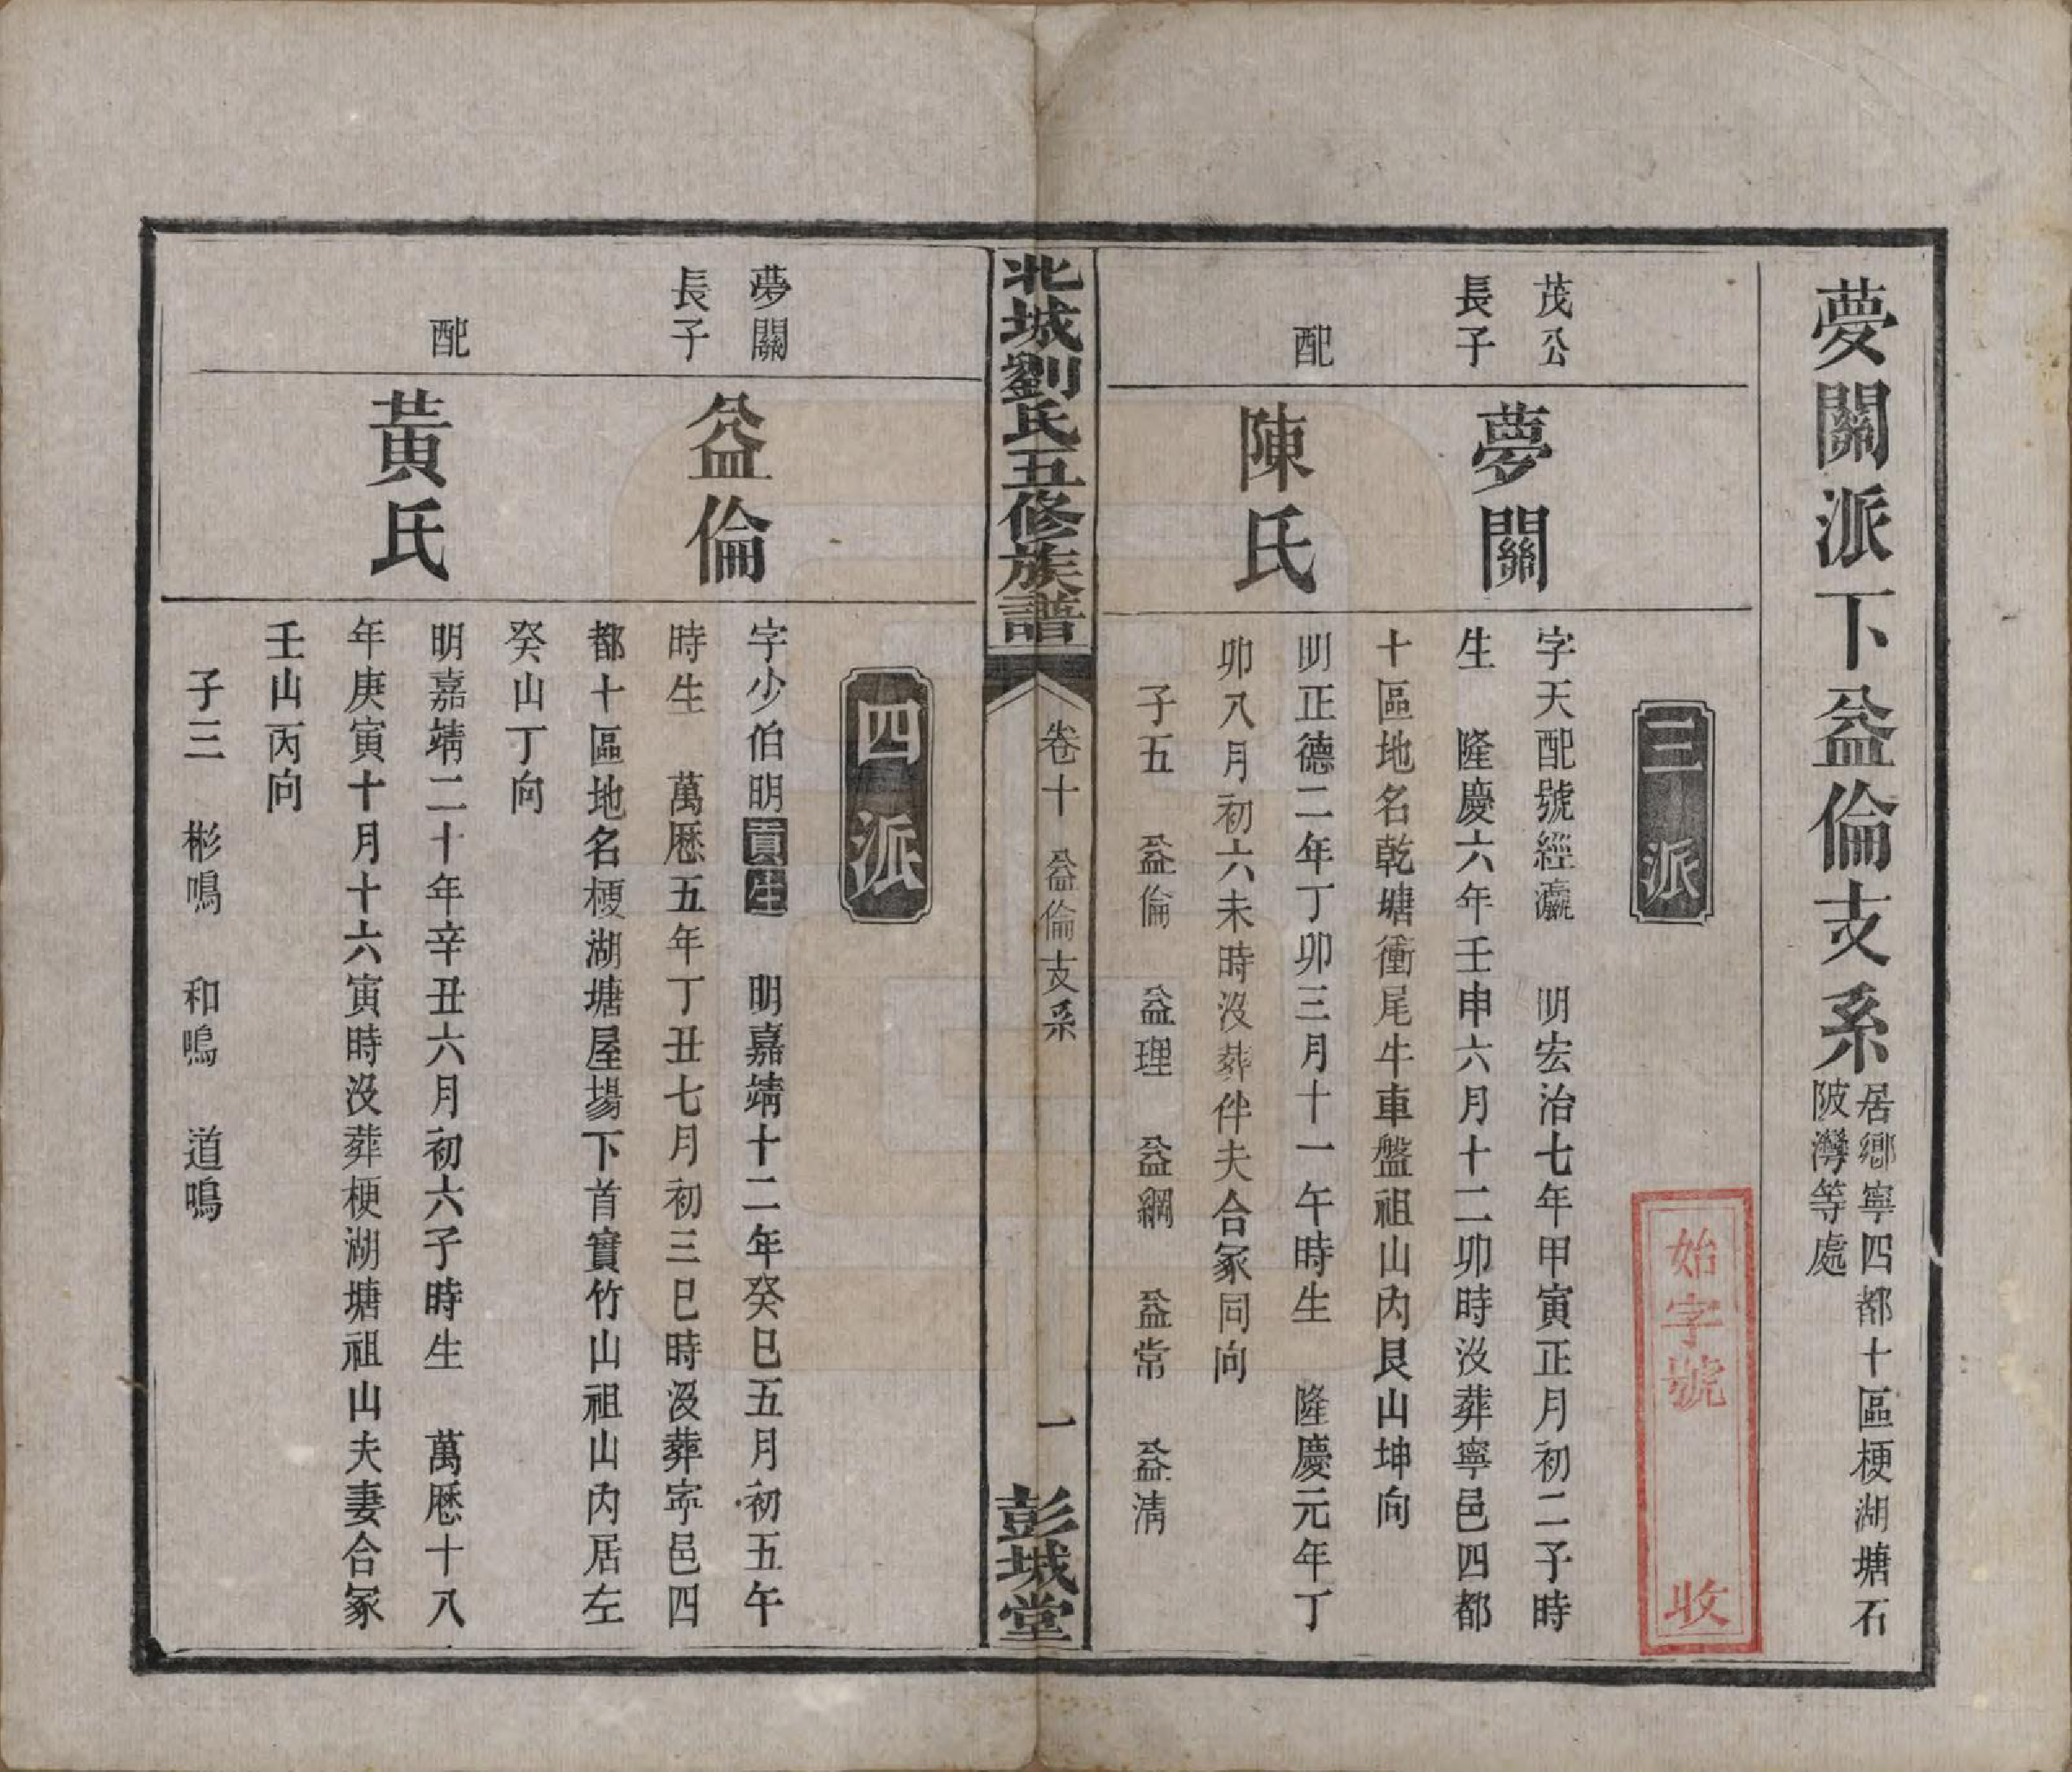 夢關派下益倫支系
居鄉寧四都十區梗湖塘石
陂灣等處
三派
始字號 收
茂公
長子
夢關
字天配號經瀛 明宏治七年甲寅正月初二子時
生 隆慶六年壬申六月十二卯時沒葬寧邑四都
十區地名乾塘衝尾牛車盤祖山內艮山坤向
配
陳氏
明正德二年丁卯三月十一午時生 隆慶元年丁
卯八月初六未時沒葬伴夫合冢同向
子五 益倫 益理 益綱 益常 益清
北城劉氏五修族譜
卷十 益倫支系
一
彭城堂
四派
夢關
長子
益倫
字少伯明貢生 明嘉靖十二年癸巳五月初五午
時生 萬歷五年丁丑七月初三巳時沒葬寧邑四
都十區地名梗湖塘屋場下首實竹山祖山內居左
癸山丁向
配
黃氏
明嘉靖二十年辛丑六月初六子時生 萬歷十八
年庚寅十月十六寅時沒葬梗湖塘祖山夫妻合冢
壬山丙向
子三 彬鳴 和鳴 道鳴